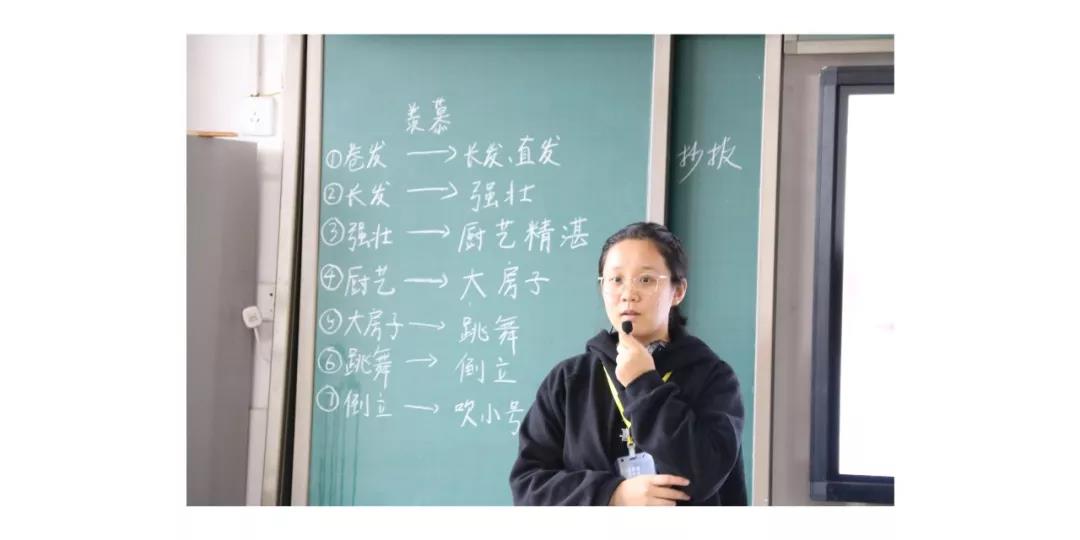 羡慕
①卷发 → 长发、直发
②长发 → 强壮
③强壮 → 厨艺精湛
④厨艺 → 大房子
⑤大房子 → 跳舞
⑥跳舞 → 倒立
⑦倒立 → 吹小号